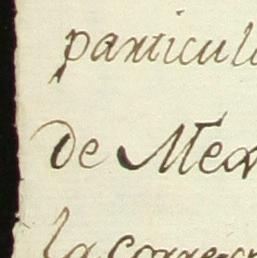 particul
de Mex
la corre